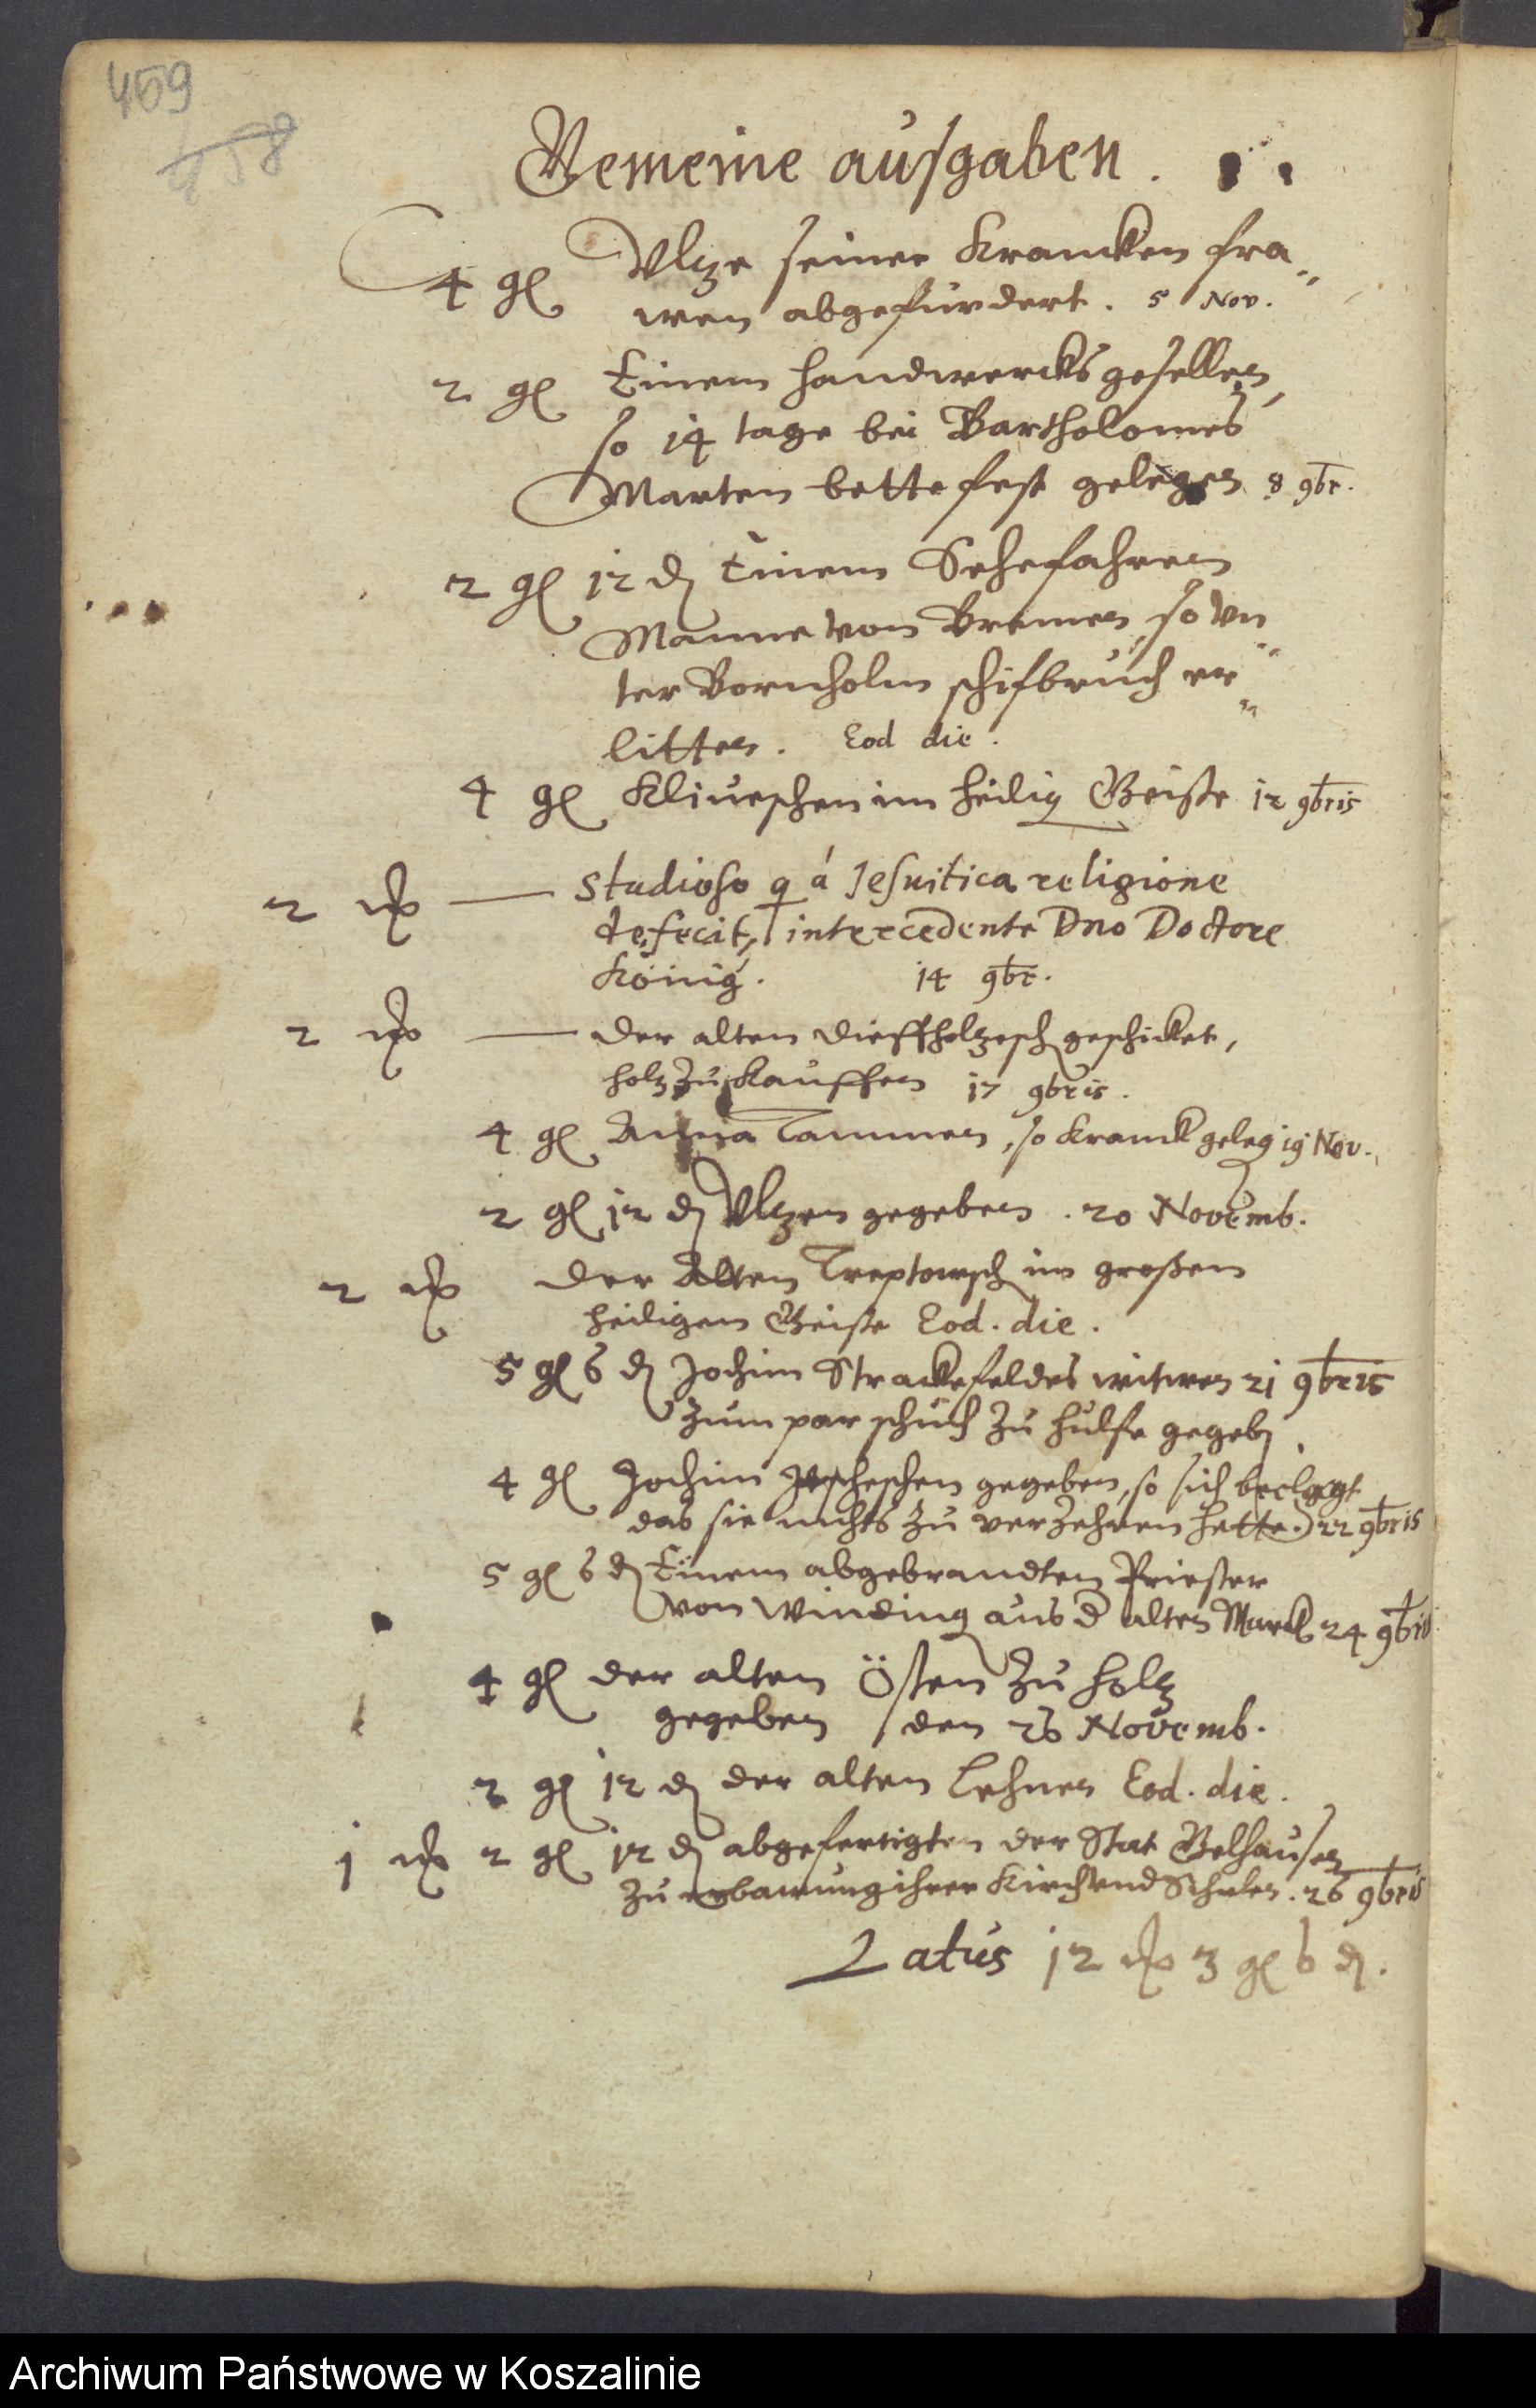 459
458
Gemeine ausgaben.
4 gl Vlze seiner Krancken fra„
wen abgefurdert. 5 Nov.
2 gl Einem handwercks gesellen,
so 14 tage bei Bartholomes
Marten bettefest gelegen 8 9br.
2 gl 12 d Einem Sehefahren
Manne von Bremen, so vn„
ter Bornholm schifbruch er„
litten. Eod die.
4 gl im heilig Geiste 12 9bris
2 fl — Studioso q á Jesuitica religione
defecit, intercedente Dno Doctore
König. 14 9br.
2 fl — der alten Dieffholzesch geschicket,
holz zu Kauffen 17 9bris.
4 gl Anna Tammen, so Kranck geleg 19 Nov.
2 gl 12 d Vlzen gegeben. 20 Novemb.
2 fl der Alten Treptowsch im großen
heiligen Geiste Eod. die.
5 gl 6 d Jochim Strackefeldes witwen 21 9bris
zum par schuch zu hulfe gegeb.
4 gl Jochim gegeben, so sich beclagt
das sie nichts zu verzehren hette. 22 9bris
5 gl 6 d Einem abgebrandten Priester
von Winding aus d alten Marck 24 9bris
4 gl der alten Östen zu holz
gegeben den 26 Novemb.
2 gl 12 d der alten Lehnen Eod. die.
1 fl 2 gl 12 d abgefertigten der Stat Belhausen
zu erbawung ihrer Kirch vnd Schulen. 26 9bris
Latus 12 fl 3 gl 6 d.
Archiwum Państwowe w Koszalinie